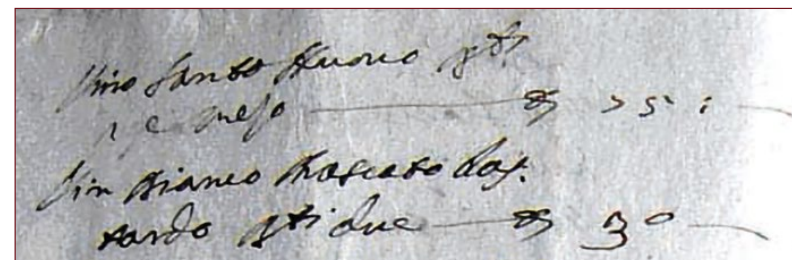 Vino Santo Nuovo qti
e mezo 25 :
Vin Bianco Moscato Bas.
tardo qti due 30